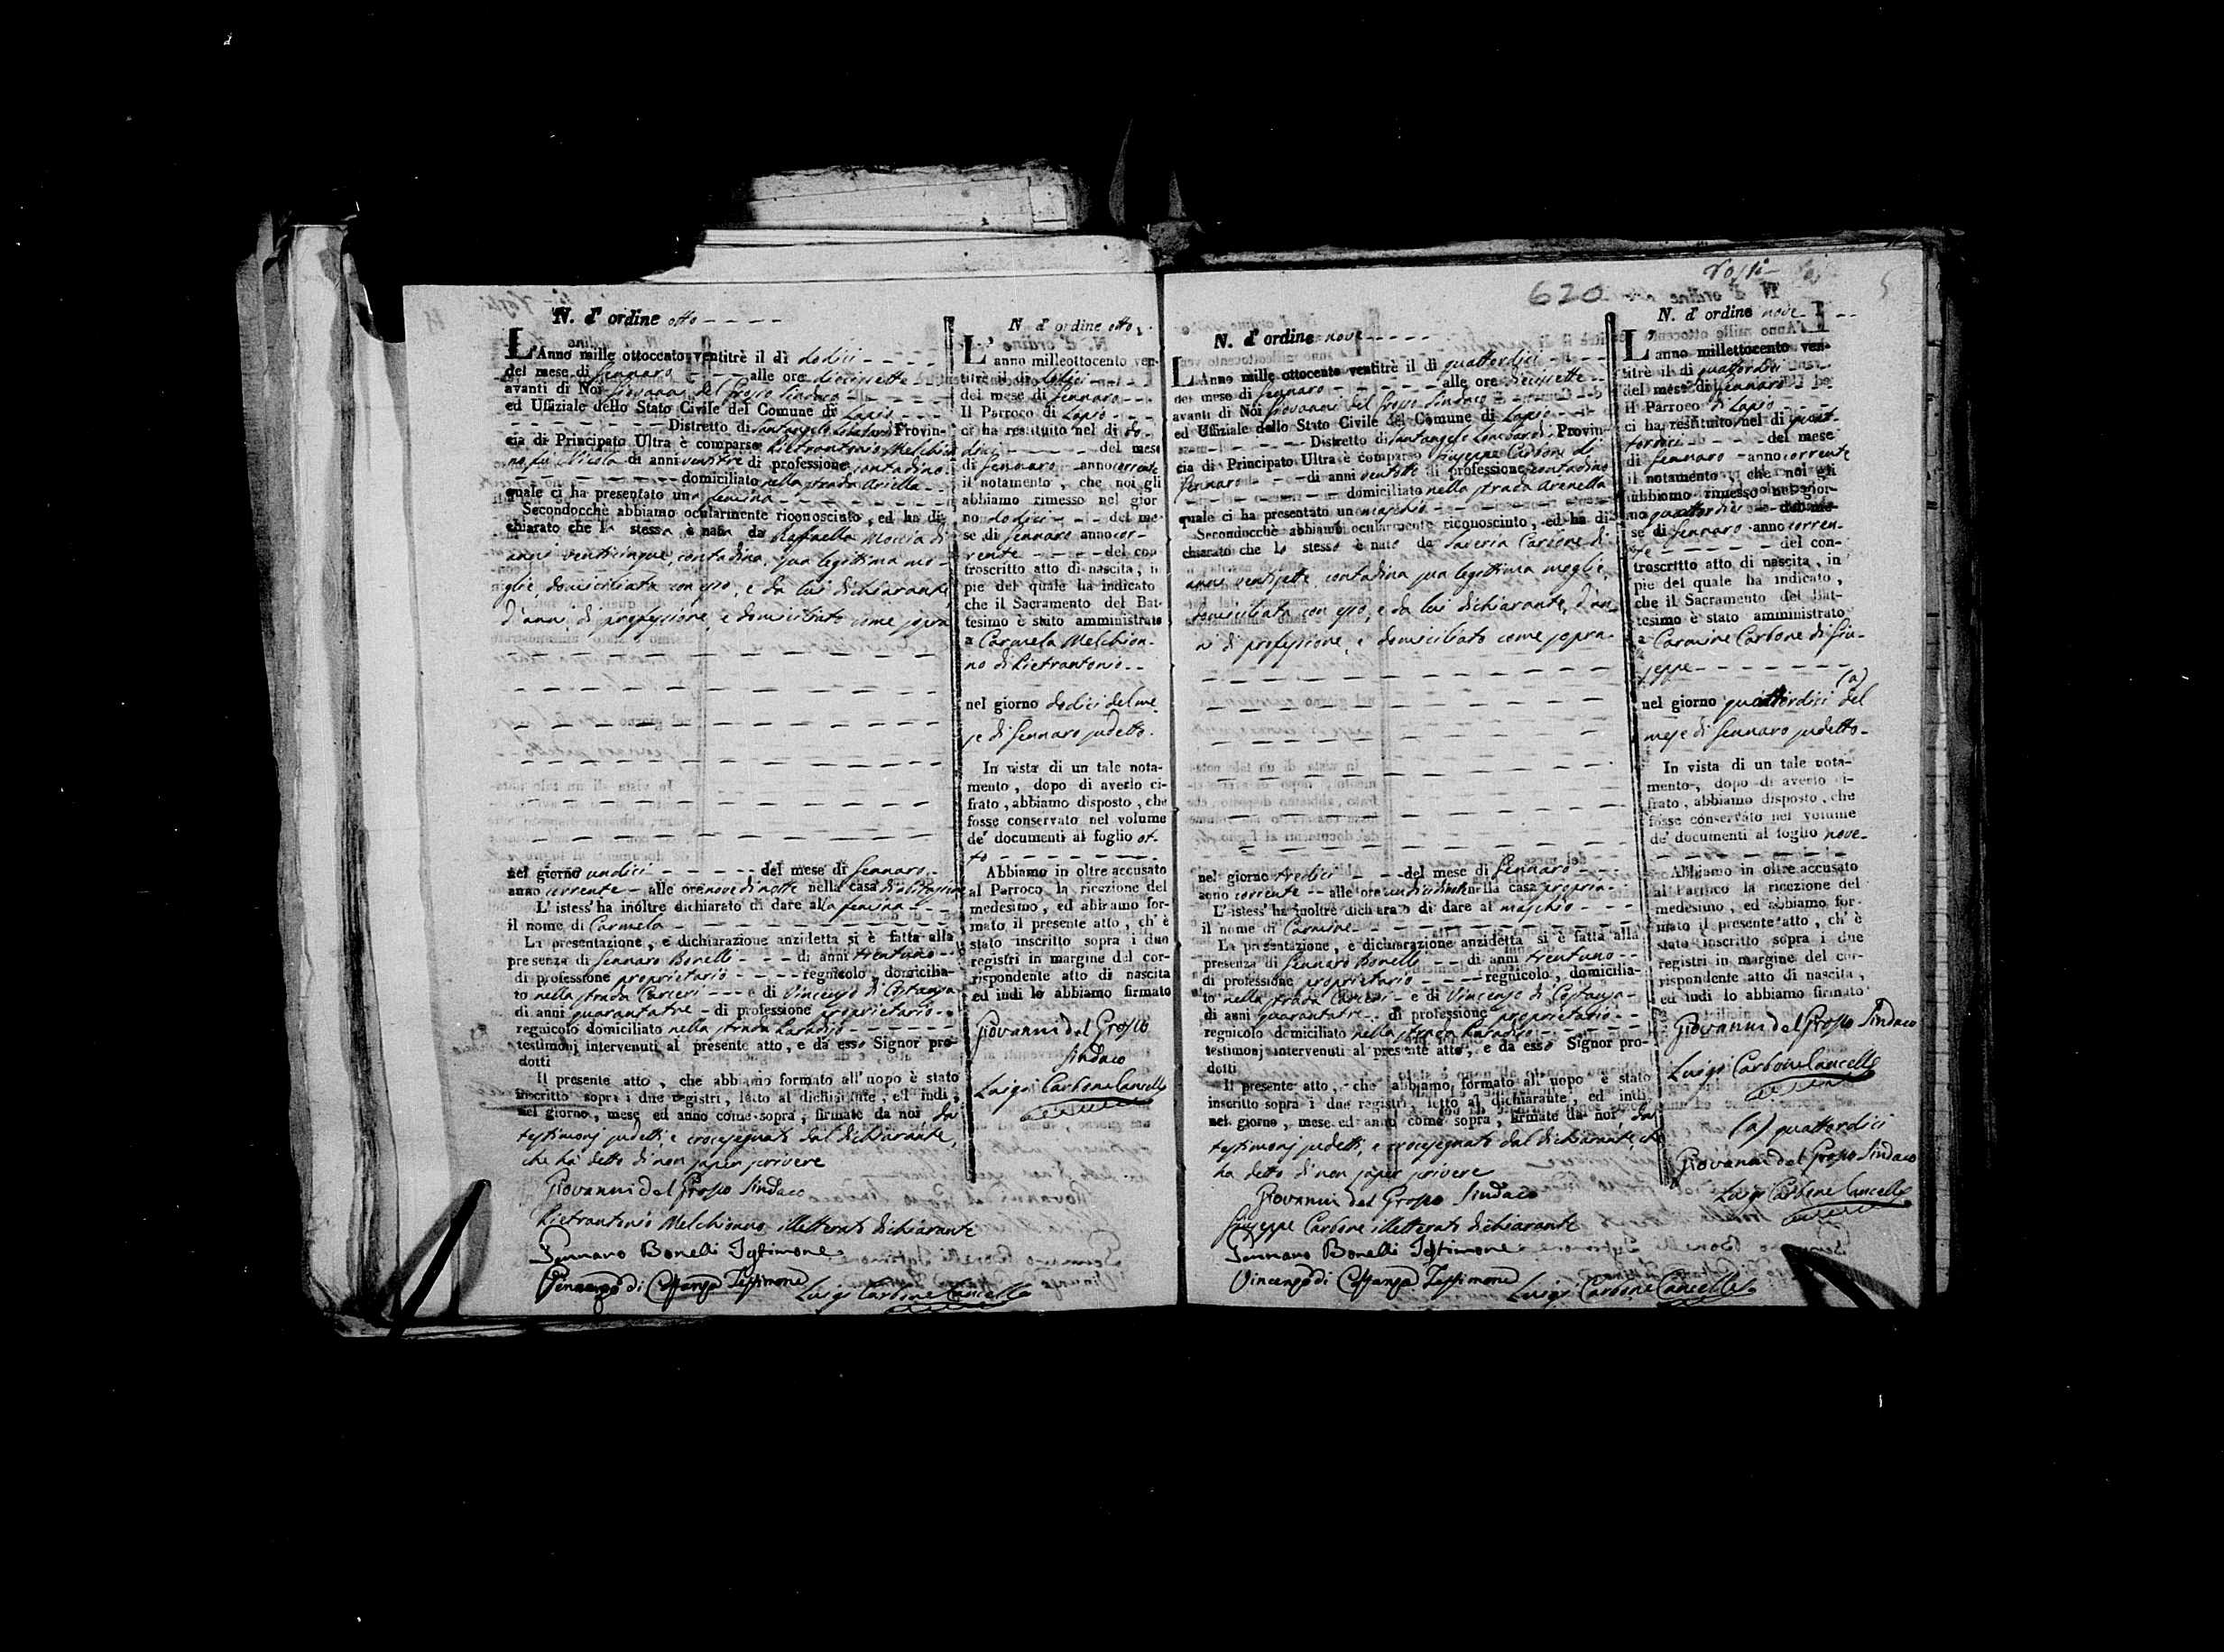 N. d' ordine otto
L'Anno mille ottocento ventitrè il dì dodici
del mese di Gennaro alle ore diecissette
avanti di Noi Giovanni del Grosso Sindaco
ed Uffiziale dello Stato Civile del Comune di Lapio
Distretto di Santangelo Lombardi Provin-
cia di Principato Ultra è comparso Pietrantonio Melchion
no fu Nicola di anni ventitre di professione contadino
domiciliato nella strada Ariella
quale ci ha presentato una femina
Secondocchè abbiamo ocularmente riconosciuto, ed ha di-
chiarato che la stessa è nata da Raffaella Moccia di
anni venticinque, contadina, sua legittima mo-
glie, domiciliata con esso, e da lui dichiarante
d'anni, di professione, e domiciliato come sopra
nel giorno undici del mese di Gennaro
anno corrente alle ore nove di notte nella casa di abitazione
L' istess' ha inoltre dichiarato di dare alla femina
il nome di Carmela
La presentazione, e dichiarazione anzidetta si è fatta alla
presenza di Gennaro Bonelli di anni trentuno
di professione proprietario regnicolo, domicilia-
to nella strada Carceri e di Vincenzo di Costanza
di anni quarantatre di professione proprietario
regnicolo domiciliato nella strada Paradiso
testimonj intervenuti al presente atto, e da esso Signor pro-
dotti
Il presente atto, che abbiamo formato all' uopo è stato
inscritto sopra i due registri, letto al dichiarante, ed indi,
nel giorno, mese ed anno come sopra, firmato da noi, dai
testimonj sudetti, e crocesegnato dal dichiarante,
che ha detto di non saper scrivere
Giovanni del Grosso Sindaco
Pietrantonio Melchionno illetterato dichiarante
Gennaro Bonelli Testimone
Vincenzo di Costanza Testimone
Luigi Carbone Cancell.e
N. d' ordine otto
L' anno milleottocento ven-
titrè il dì dodici
del mese di Gennaro
Il Parroco di Lapio
ci ha restituito nel dì do-
dici del mese
di Gennaro anno corrente
il notamento, che noi gli
abbiamo rimesso nel gior
no dodici del me-
se di Gennaro anno cor-
rente del con
troscritto atto di nascita, in
pie del quale ha indicato
che il Sacramento del Bat-
tesimo è stato amministrato
a Carmela Melchion-
no di Pietrantonio
nel giorno dodici del me
se di Gennaro sudetto.
In vista di un tale nota-
mento, dopo di averlo ci-
frato, abbiamo disposto, che
fosse conservato nel volume
de' documenti al foglio ot-
to
Abbiamo in oltre accusato
al Parroco la ricezione del
medesimo, ed abbiamo for-
mato il presente atto, ch' è
stato inscritto sopra i due
registri in margine del cor-
rispondente atto di nascita
ed indi lo abbiamo firmato
Giovanni del Grosso
Sindaco
Luigi Carbone Cancell.e
620
5
N. d' ordine nove
L'Anno mille ottocento ventitrè il dì quattordici
del mese di Gennaro alle ore diecissette
avanti di Noi Giovanni del Grosso Sindaco
ed Uffiziale dello Stato Civile del Comune di Lapio
Distretto di Santangelo Lombardi Provin-
cia di Principato Ultra è comparso Giuseppe Carbone di
Gennaro di anni ventotto di professione contadino
domiciliato nella strada Arenella
quale ci ha presentato un maschio
Secondocchè abbiamo ocularmente riconosciuto, ed ha di-
chiarato che lo stesso è nato da Saveria Carbone di
anni ventisette contadina sua legittima moglie,
domiciliata con esso, e da lui dichiarante, d'an
ni di professione, e domiciliato come sopra
nel giorno tredici del mese di Gennaro
anno corrente alle ore undici di notte nella casa propria
L' istess' ha inoltre dichiarato di dare al maschio
il nome di Carmine
La presentazione, e dichiarazione anzidetta si è fatta alla
presenza di Gennaro Bonelli di anni trentuno
di professione proprietario regnicolo, domicilia-
to nella strada Carceri e di Vincenzo di Costanza
di anni quarantatre di professione proprietario
regnicolo domiciliato nella strada Paradiso
testimonj intervenuti al presente atto, e da esso Signor pro-
dotti
Il presente atto, che abbiamo formato all' uopo è stato
inscritto sopra i due registri, letto al dichiarante, ed indi
nel giorno, mese ed anno come sopra, firmato da noi, dai
testimonj sudetti, e crocesegnato dal dichiarante, che
ha detto di non saper scrivere
Giovanni del Grosso Sindaco
Giuseppe Carbone illetterato dichiarante
Gennaro Bonelli Testimone
Vincenzo di Costanza Testimone
Luigi Carbone Cancell.e
N. d' ordine nove
L' anno millettocento ven-
titrè il dì quattordici
del mese di Gennaro
Il Parroco di Lapio
ci ha restituito nel dì quat-
tordici del mese
di Gennaro anno corrente
il notamento, che noi gli
abbiamo rimesso nel gior-
no quattordici del me-
se di Gennaro anno corren-
te del con-
troscritto atto di nascita, in
pie del quale ha indicato,
che il Sacramento del Bat-
tesimo è stato amministrato
a Carmine Carbone di Giu-
seppe
(a)
nel giorno quattordici del
mese di Gennaro sudetto
In vista di un tale nota-
mento, dopo di averlo ci-
frato, abbiamo disposto, che
fosse conservato nel volume
de' documenti al foglio nove
Abbiamo in oltre accusato
al Parroco la ricezione del
medesimo, ed abbiamo for-
mato il presente atto, ch' è
stato inscritto sopra i due
registri in margine del cor-
rispondente atto di nascita,
ed indi lo abbiamo firmato
Giovanni del Grosso Sindaco
Luigi Carbone Cancell.e
(a) quattordici
Giovanni del Grosso Sindaco
Luigi Carbone Cancell.e